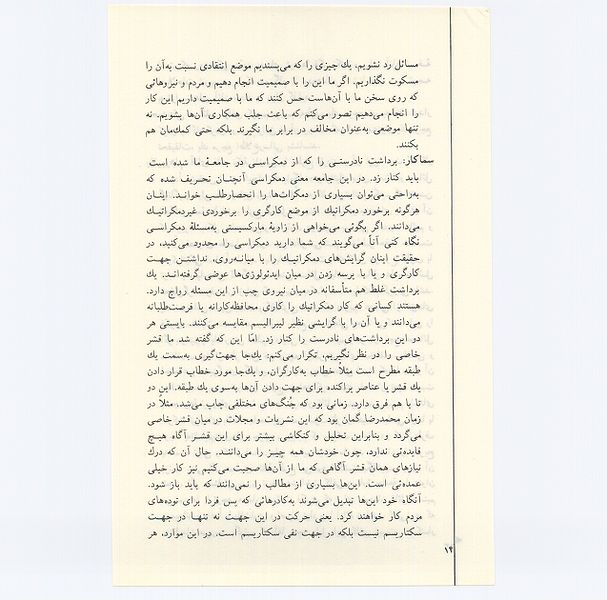 مسائل رد نشویم. یك چیزی را که می‌پسندیم موضع انتقادی نسبت به‌آن را
مسکوت نگذاریم. اگر ما این را با صمیمیت انجام دهیم و مردم و نیروهائی
که روی سخن ما با آن‌هاست حس کنند که ما با صمیمیت داریم این کار
را انجام می‌دهیم تصور می‌کنم که باعث جلب همکاری آن‌ها بشویم. نه
تنها موضعی به‌عنوان مخالف در برابر ما نگیرند بلکه حتی کمك‌مان هم
بکنند.
سماکار: برداشت نادرستی را که از دمکراسی در جامعهٔ ما شده است
باید کنار زد. در این جامعه معنی دمکراسی آنچنان تحریف شده که
به‌راحتی می‌توان بسیاری از دمکرات‌ها را انحصارطلب خواند. اینان
هرگونه برخورد دمکراتیك از موضع کارگری را برخوردی غیردمکراتیك
می‌دانند. اگر بگوئی می‌خواهی از زاویهٔ مارکسیستی به‌مسئلهٔ دمکراسی
نگاه کنی آناً می‌گویند که شما دارید دمکراسی را محدود می‌کنید، در
حقیقت اینان گرایش‌های دمکراتیك را با میانه‌روی، نداشتن جهت
کارگری و یا با پرسه زدن در میان ایدئولوژی‌ها عوضی گرفته‌اند. یك
برداشت غلط هم متأسفانه در میان نیروی چپ از این مسئله رواج دارد.
هستند کسانی که کار دمکراتیك را کاری محافظه‌کارانه یا فرصت‌طلبانه
می‌دانند و یا آن را با گرایشی نظیر لیبرالیسم مقایسه می‌کنند. بایستی هر
دو این برداشت‌های نادرست را کنار زد. امّا این که گفته شد ما قشر
خاصی را در نظر نگیریم، تکرار می‌کنم: یك‌جا جهت‌گیری به‌سمت یك
طبقه مطرح است مثلاً خطاب به‌کارگران، و یك‌جا مورد خطاب قرار دادن
یك قشر یا عناصر پراکنده برای جهت دادن آن‌ها به‌سوی یك طبقه. این دو
تا با هم فرق دارد. زمانی بود که جُنگ‌های مختلفی چاپ می‌شد، مثلاً در
زمان محمدرضا گمان بود که این نشریات و مجلات در میان قشر خاصی
می‌گردد و بنابراین تحلیل و کنکاشی بیشتر برای این قشر آگاه هیچ
فایده‌ئی ندارد، چون خودشان همه چیز را می‌دانند. حال آن که درك
نیازهای همان قشر آگاهی که ما از آن‌ها صحبت می‌کنیم نیز کار خیلی
عمده‌ئی است. این‌ها بسیاری از مطالب را نمی‌دانند که باید باز شود.
آنگاه خود این‌ها تبدیل می‌شوند به‌کادرهائی که پس فردا برای توده‌های
مردم کار خواهند کرد. یعنی حرکت در این جهت نه تنها در جهت
سکتاریسم نیست بلکه در جهت نفی سکتاریسم است. در این موارد، هر
۱۴